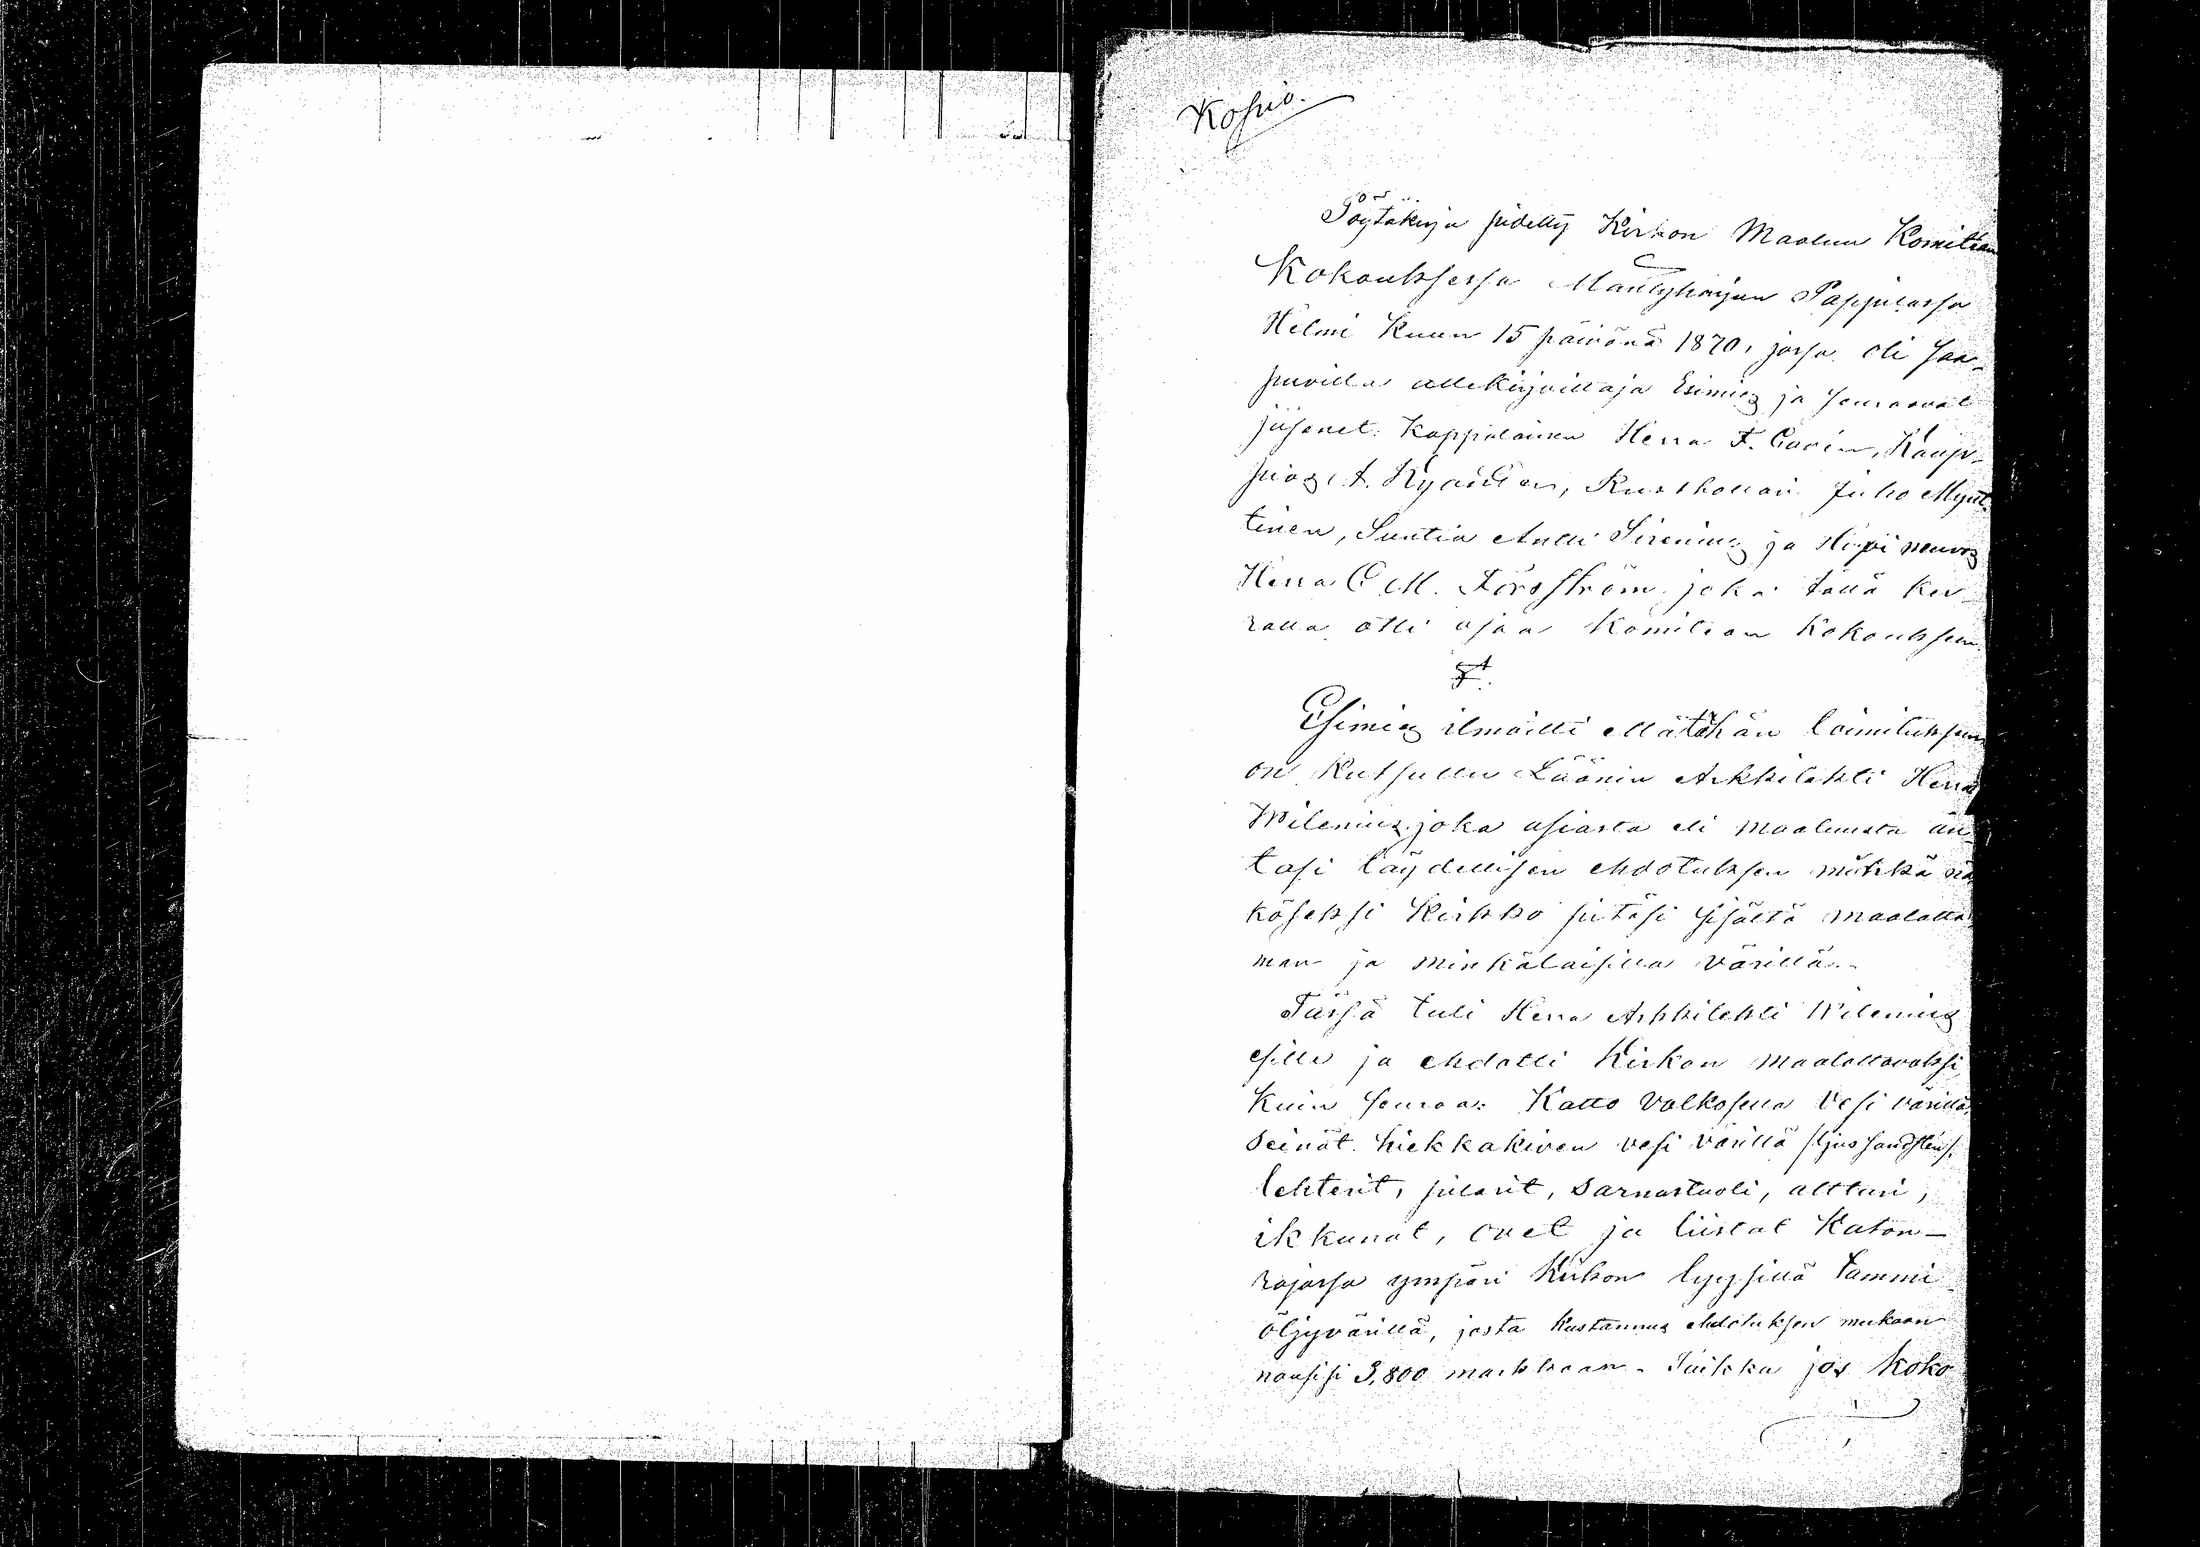 Kopio.
Pöytäkirja pidetty Kirkon Maaluu Komitean
Kokouksessa Mäntyharjun Pappilassa
Helmi Kuun 15 päivänä 1870, jossa oli saa-
puvilla allekirjoittaja Esimies ja seuraavat
jäsenet: Kappalainen Herra F. Cavén, Kaup-
pias A. Kyander, Rusthollari Juho Mynt-
tinen, Suntio Antti Sirenius ja neuvos
Herra C. M. Forsström, joka tällä ker-
ralla otti osaa Komitean Kokouksen.
§ 1.
Esimies ilmoitti että tähän toimituksen
on Kutsuttu Läänin Arkkitehti Herra
Wilenius, joka asiasta eli maaluusta an-
tasi täydellisen ehdotuksen minkä nä-
köseksi Kirkko pitäsi sisältä maalatta-
man ja minkälaisilla värillä.-
Tässä tuli Herra Arkkitehti Wilenius
esille ja ehdotti Kirkon maalattavaksi
Kuin seuraa: Katto valkosella vesi värillä,
seinät hiekkakiven vesi värillä ljus sandsten,
lehterit, pilarit, sarnastuoli, alttari,
ikkunat, ovet ja liistat Katon-
rajassa ympäri Kirkon lyysillä tammi
öljyvärillä, josta Kustannus ehdotuksen mukaan
nousisi 3,800 markkaan. Taikka jos Koko